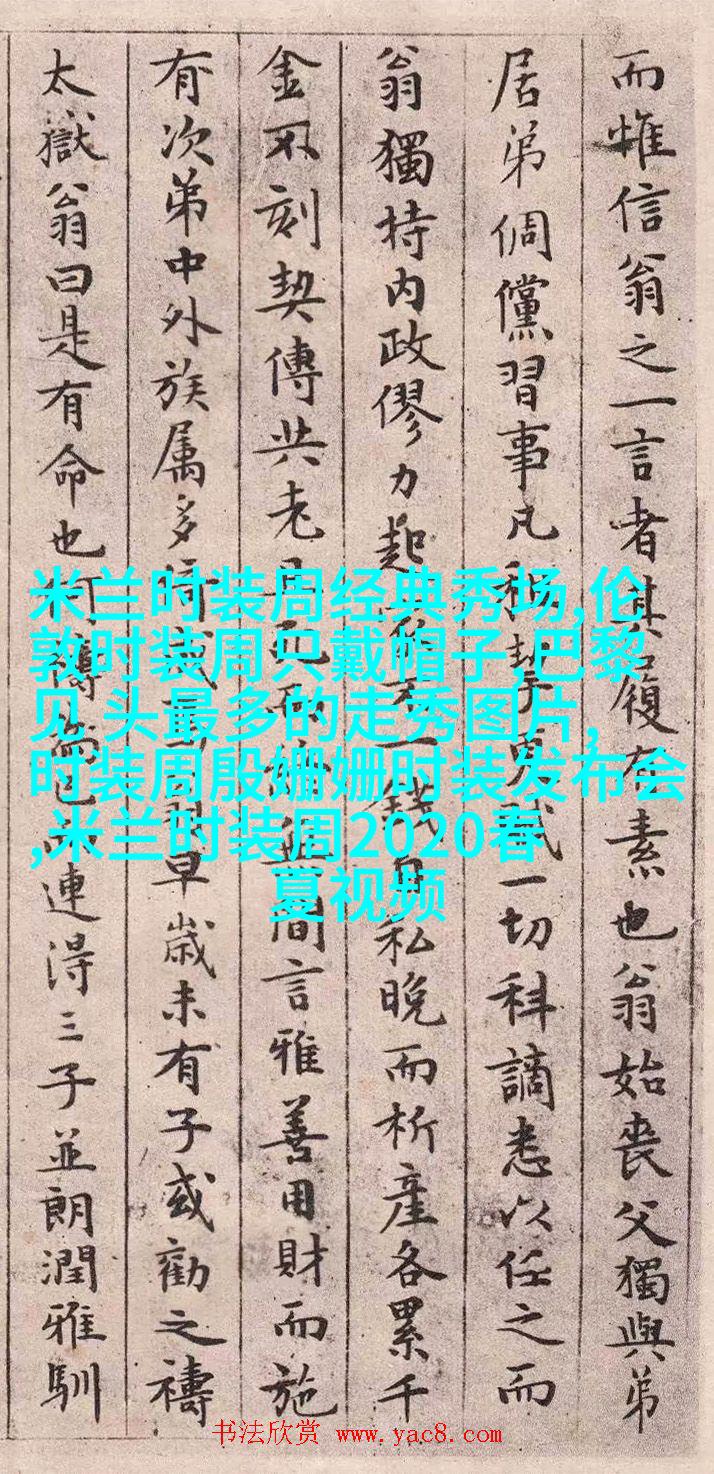 而惟信翁之一言者其履有素也翁始喪父獨與弟
居弟倜儻習事凡一切科謫悉以任之而
翁獨持內政僇力起一錢自私晚而析產各累千
金不刻契傳共老間言雅善用財而施
有次弟中外族属多早歲未有子或勸之禱
太獄翁曰是有命也連得三子並朗潤雅馴
米兰时装周经典秀场,伦
敦时装周只戴帽子,巴黎
见,头最多的走秀图片,
时装周殷姗姗时装发布会
,米兰时装周2020春
夏视频
书法欣赏 www.yac8.com